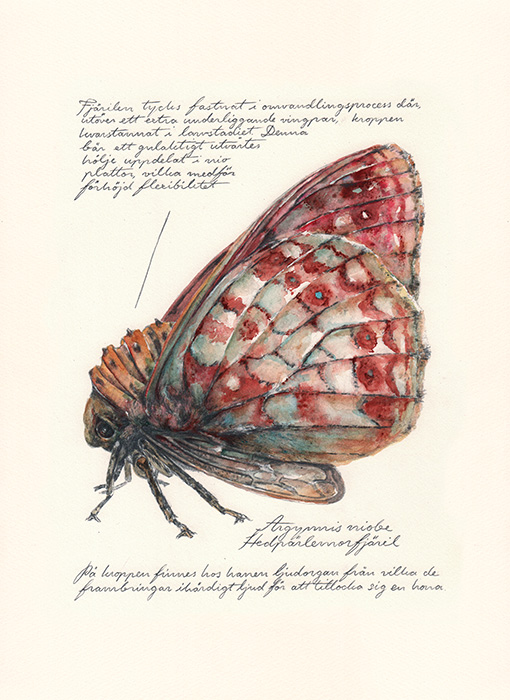 Fjärilen tycks fastnat i omvandlingsprocess där,
utöver ett extra underliggande vingpar, kroppen
kvarstannat i larvstadiet. Denna
bär ett gulaktigt utvärtes
hölje uppdelat i nio
plattor, vilka medför
förhöjd flexibilitet
Argynnis niobe
Hedpärlemorfjäril
På kroppen finnes hos hanen ljudorgan från vilka de
frambringar ihärdigt ljud för att tillocka sig en hona.